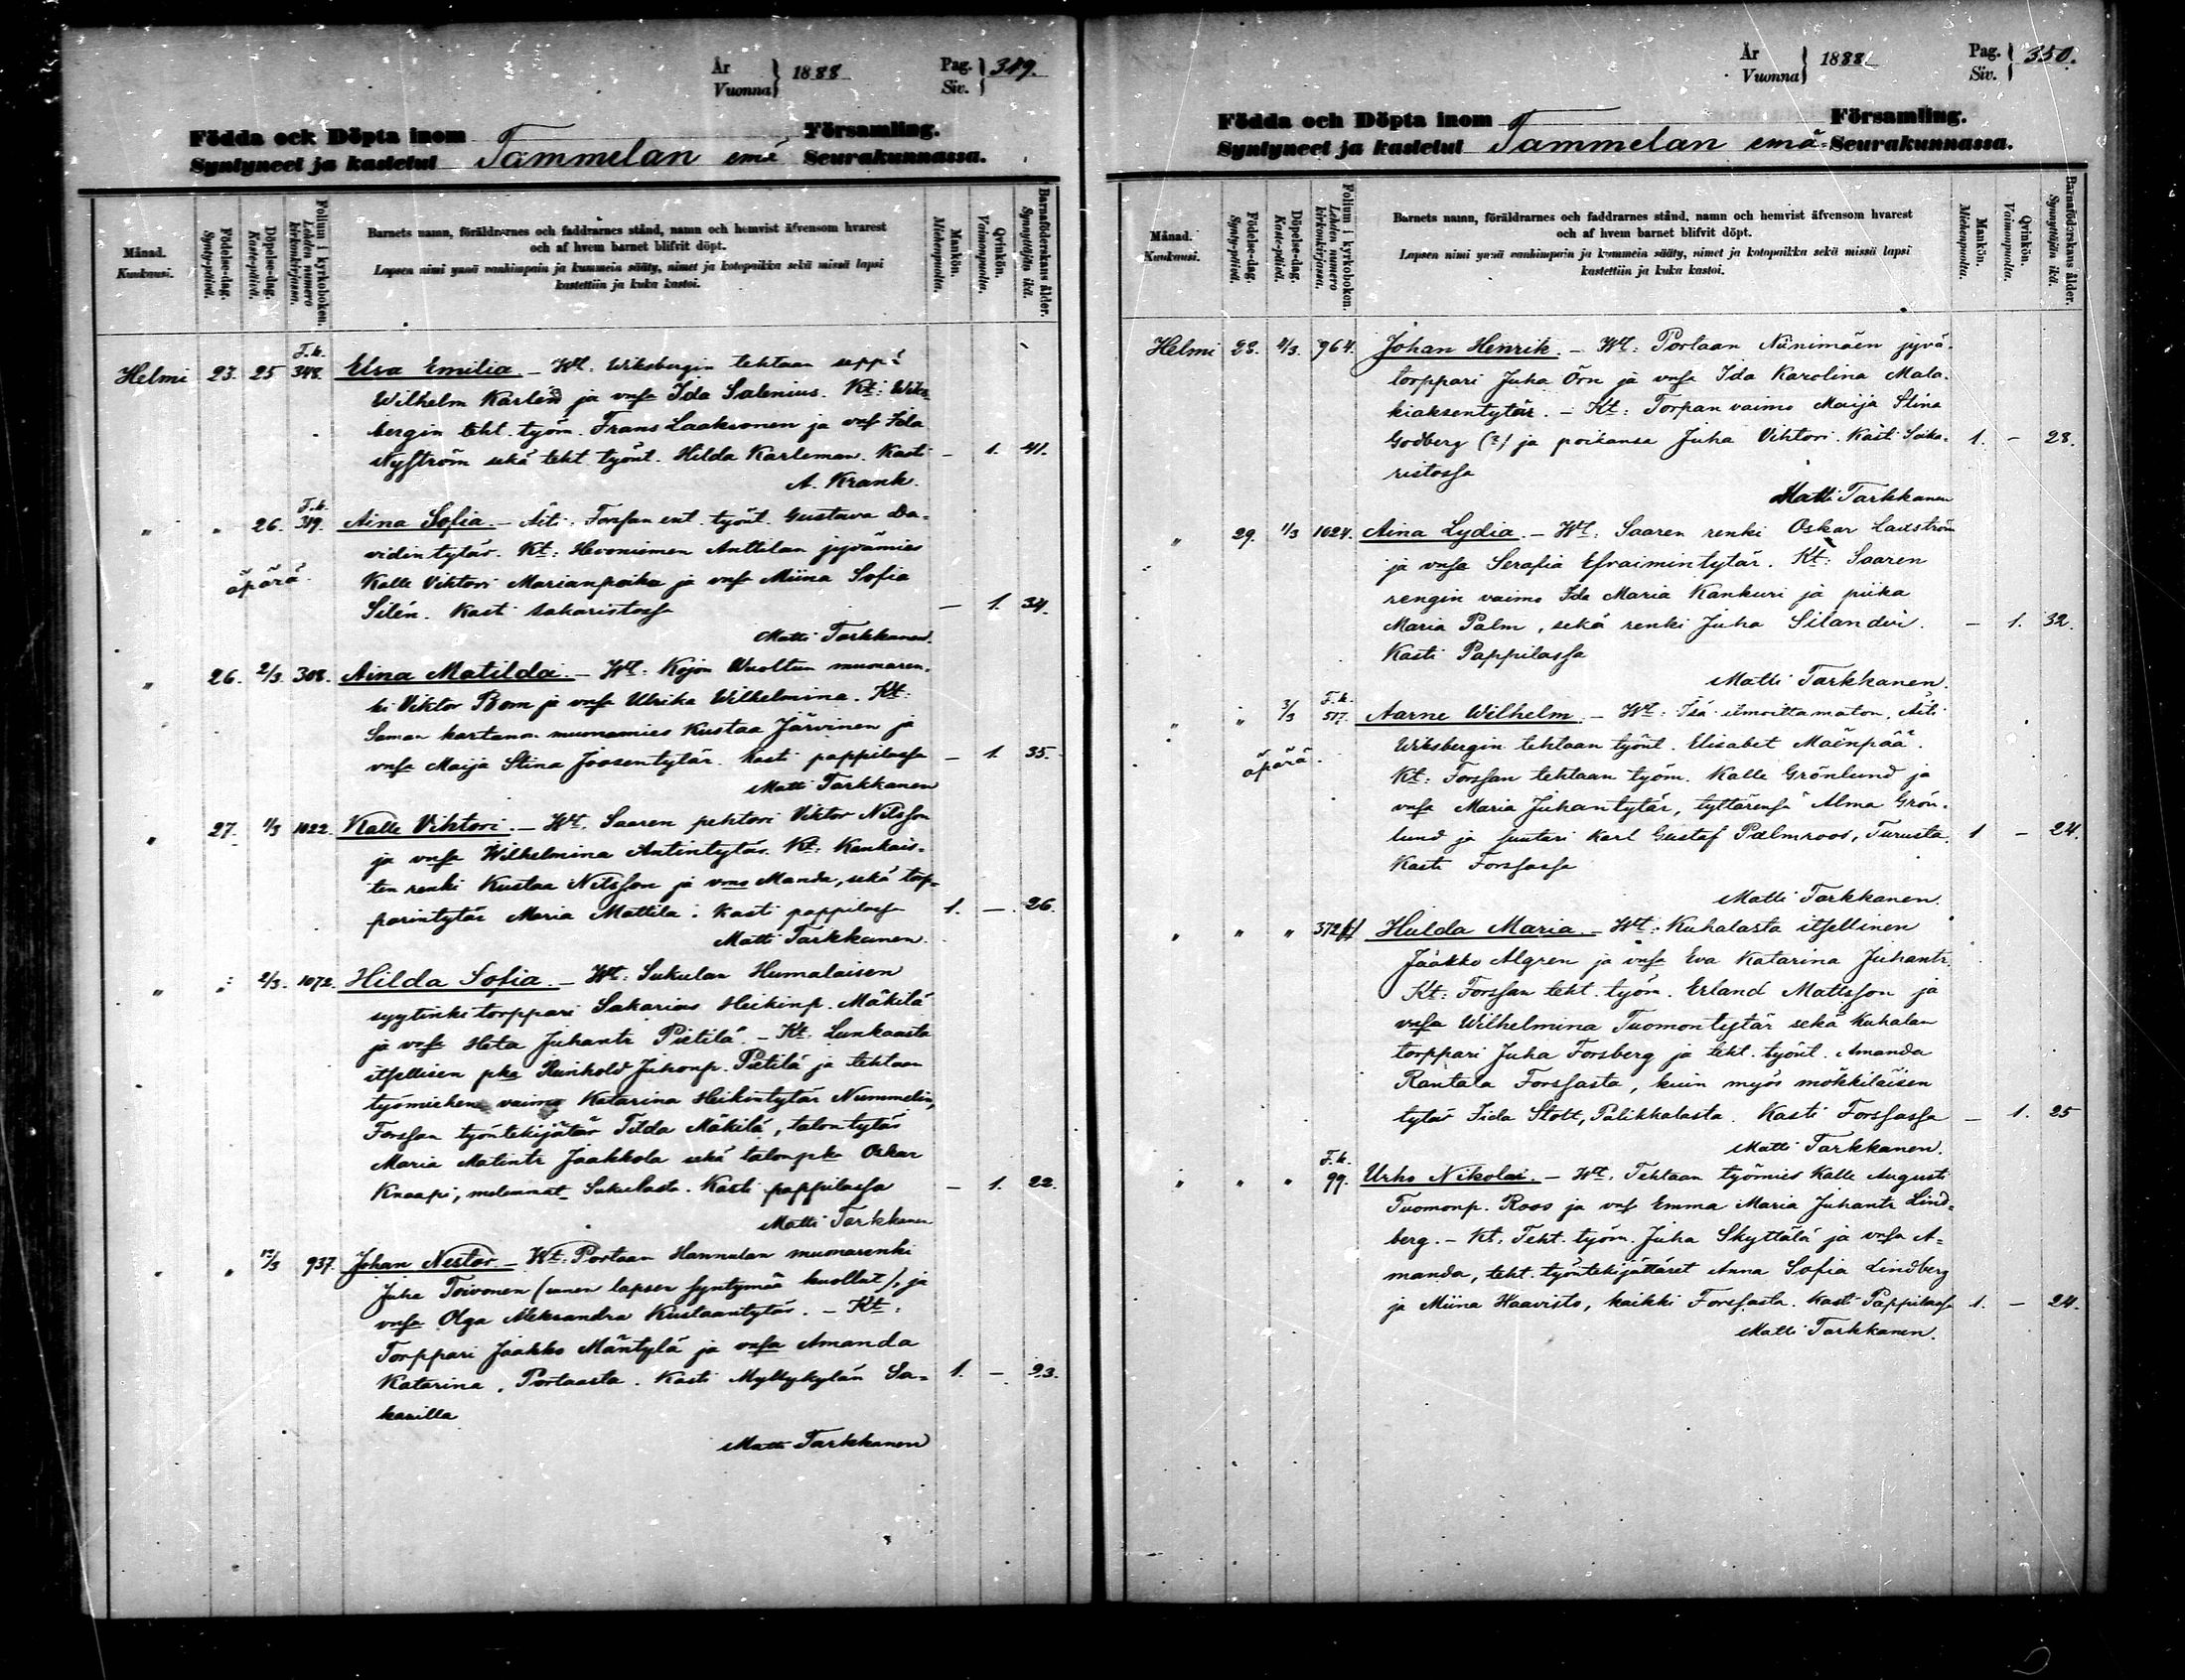 År
Vuonna } 1888
Pag.
Siv. } 349.
Födda ock Döpta inom
Församling.
Syntyneet ja kastetut Tammelan emä Seurakunnassa.
Månad.
Kuukausi.
Födelse-dag.
Synty-päivä.
Döpelse-dag.
Kaste-päivä.
Folium i kyrkoboken.
Lehden numero kirkonkirjassa.
Barnets namn, föräldrarnes och faddrarnes stånd, namn och hemvist äfvensom hvarest
och af hvem barnet blifvit döpt.
Lapsen nimi ynnä vanhimpain ja kummein sääty, nimet ja kotopaikka sekä missä lapsi
kastettiin ja kuka kastoi.
Mankön.
Miehenpuolta.
Qvinkön.
Vaimonpuolta.
Barnaföderskans ålder.
Synnyttäjän ikä.
Helmi 23. 25 F.k. 348. Elsa Emilia. – Wt. Wiksbergin tehtaan seppä
Wilhelm Karlén ja vnsa Ida Salenius. Kt: Wiks-
bergin teht. työm. Frans Laaksonen ja vnsa Ida
Nyström sekä teht työnt. Hilda Karleman. Kasti – 1. 41.
A. Krank.
" " 26. F.k. 319. Aina Sofia. – Äiti: Forssan ent. työnt. Gustava Da-
vidintytär. Kt: Hevoniemen Anttilan jyvämies
äpärä. Kalle Viktori Marianpoika ja vnsa Miina Sofia
Silén. Kast. sakaristossa – 1. 34.
Matti Tarkkanen.
" 26. 2/3. 308. Aina Matilda. – Wt. Kojon Wuoltun muonaren-
ki Viktor Bom ja vnsa Ulrika Wilhelmina. Kt:
Saman kartanon muonamies Kustaa Järvinen ja
vnsa Maija Stina Joosentytär. Kasti pappilassa – 1. 35.
Matti Tarkkanen
" 27. 1/3 1022. Kalle Vihtori. – Wt. Saaren pehtori Viktor Nilsson
ja vnsa Wilhelmina Antintytär. Kt: Kankais-
ten renki Kustaa Nilsson ja vmo Manda, sekä torp-
parintytär Maria Mattila. Kasti pappilassa 1. – 26.
Matti Tarkkanen.
" " 2/3. 1072. Hilda Sofia. – Wt: Sukulan Humalaisen
syytinki torppari Sakarias Heikinp. Mäkilä
ja vnsa Heta Juhantr Pietilä. – Kt. Lunkaasta
itsellisen pka Reinhold Juhonp. Pietilä ja tehtaan
työmiehen vaimo Katarina Heikintytär Nummelin,
Forssan työntekijätär Tilda Mäkilä, talontytär
Maria Matintr Jaakkola sekä talonpka Oskar
Knaapi, molemmat Sukulasta. Kasti pappilassa – 1. 22.
Matti Tarkkanen
" " 12/3 937. Johan Nestor – Wt: Portaan Hannulan muonarenki
Juha Toivonen (ennen lapsen syntymää kuollut), ja
vnsa Olga Aleksandra Kustaantytär. – Kt:
Torppari Jaakko Mäntylä ja vnsa Amanda
Katarina, Portaasta. Kasti Myllykylän Sa- 1. – 23.
karilla
Matti Tarkkanen
År
Vuonna } 1888
Pag.
Siv. } 350.
Födda och Döpta inom
Församling.
Syntyneet ja kastetut Tammelan emä Seurakunnassa.
Månad.
Kuukausi.
Födelse-dag.
Synty-päivä.
Döpelse-dag.
Kaste-päivä.
Folium i kyrkoboken.
Lehden numero kirkonkirjassa.
Barnets namn, föräldrarnes och faddrarnes stånd, namn och hemvist äfvensom hvarest
och af hvem barnet blifvit döpt.
Lapsen nimi ynnä vanhimpain ja kummein sääty, nimet ja kotopaikka sekä missä lapsi
kastettiin ja kuka kastoi.
Mankön.
Miehenpuolta.
Qvinkön.
Vaimonpuolta.
Barnaföderskans ålder.
Synnyttäjän ikä.
Helmi 28. 4/3. 964. Johan Henrik. – Wt: Portaan Niinimäen jyvä-
torppari Juha Örn ja vnsa Ida Karolina Mala-
kiaksentytär. – Kt: Torpan vaimo Maija Stina
Godberg (?) ja poikansa Juha Vihtori. Kasti Saka- 1. – 28.
ristossa
Matti Tarkkanen
" 29. 1/3 1024. Aina Lydia. – Wt: Saaren renki Oskar Laxström
ja vnsa Serafia Efraimintytär. Kt: Saaren
rengin vaimo Ida Maria Kankuri ja piika
Maria Palm, sekä renki Juha Silander. – 1. 32.
Kasti Pappilassa
Matti Tarkkanen.
" " 3/3 F.k. 517. Aarne Wilhelm. – Wt: Isä ilmoittamaton. Äiti
Wiksbergin tehtaan työnt. Elisabet Mäenpää.
äpärä. Kt: Forssan tehtaan työm. Kalle Grönlund ja
vnsa Maria Juhantytär, tyttärensä Alma Grön-
lund ja suutari Karl Gustaf Palmroos, Turusta. 1 – 24.
Kasti Forssassa
Matti Tarkkanen.
" " " 372 Hulda Maria. – Wt: Kuhalasta itsellinen
Jaakko Algren ja vnsa Eva Katarina Juhantr.
Kt: Forssan teht. työm. Erland Mattsson ja
vnsa Wilhelmina Tuomontytär sekä Kuhalan
torppari Juha Forsberg ja teht. työnt. Amanda
Rantala Forssasta, kuin myös mökkiläisen
tytär Iida Stott, Palikkalasta. Kasti Forssassa – 1. 25
Matti Tarkkanen.
" " " F.k. 99. Urho Nikolai. – Wt. Tehtaan työmies Kalle Augusti
Tuomonp. Roos ja vnsa Emma Maria Juhantr Lind-
berg. – Kt. Teht. työm. Juha Skyttälä ja vnsa A-
manda, teht. työntekijättäret Anna Sofia Lindberg
ja Miina Haavisto, kaikki Forssasta. Kasti Pappilassa 1. – 24.
Matti Tarkkanen.